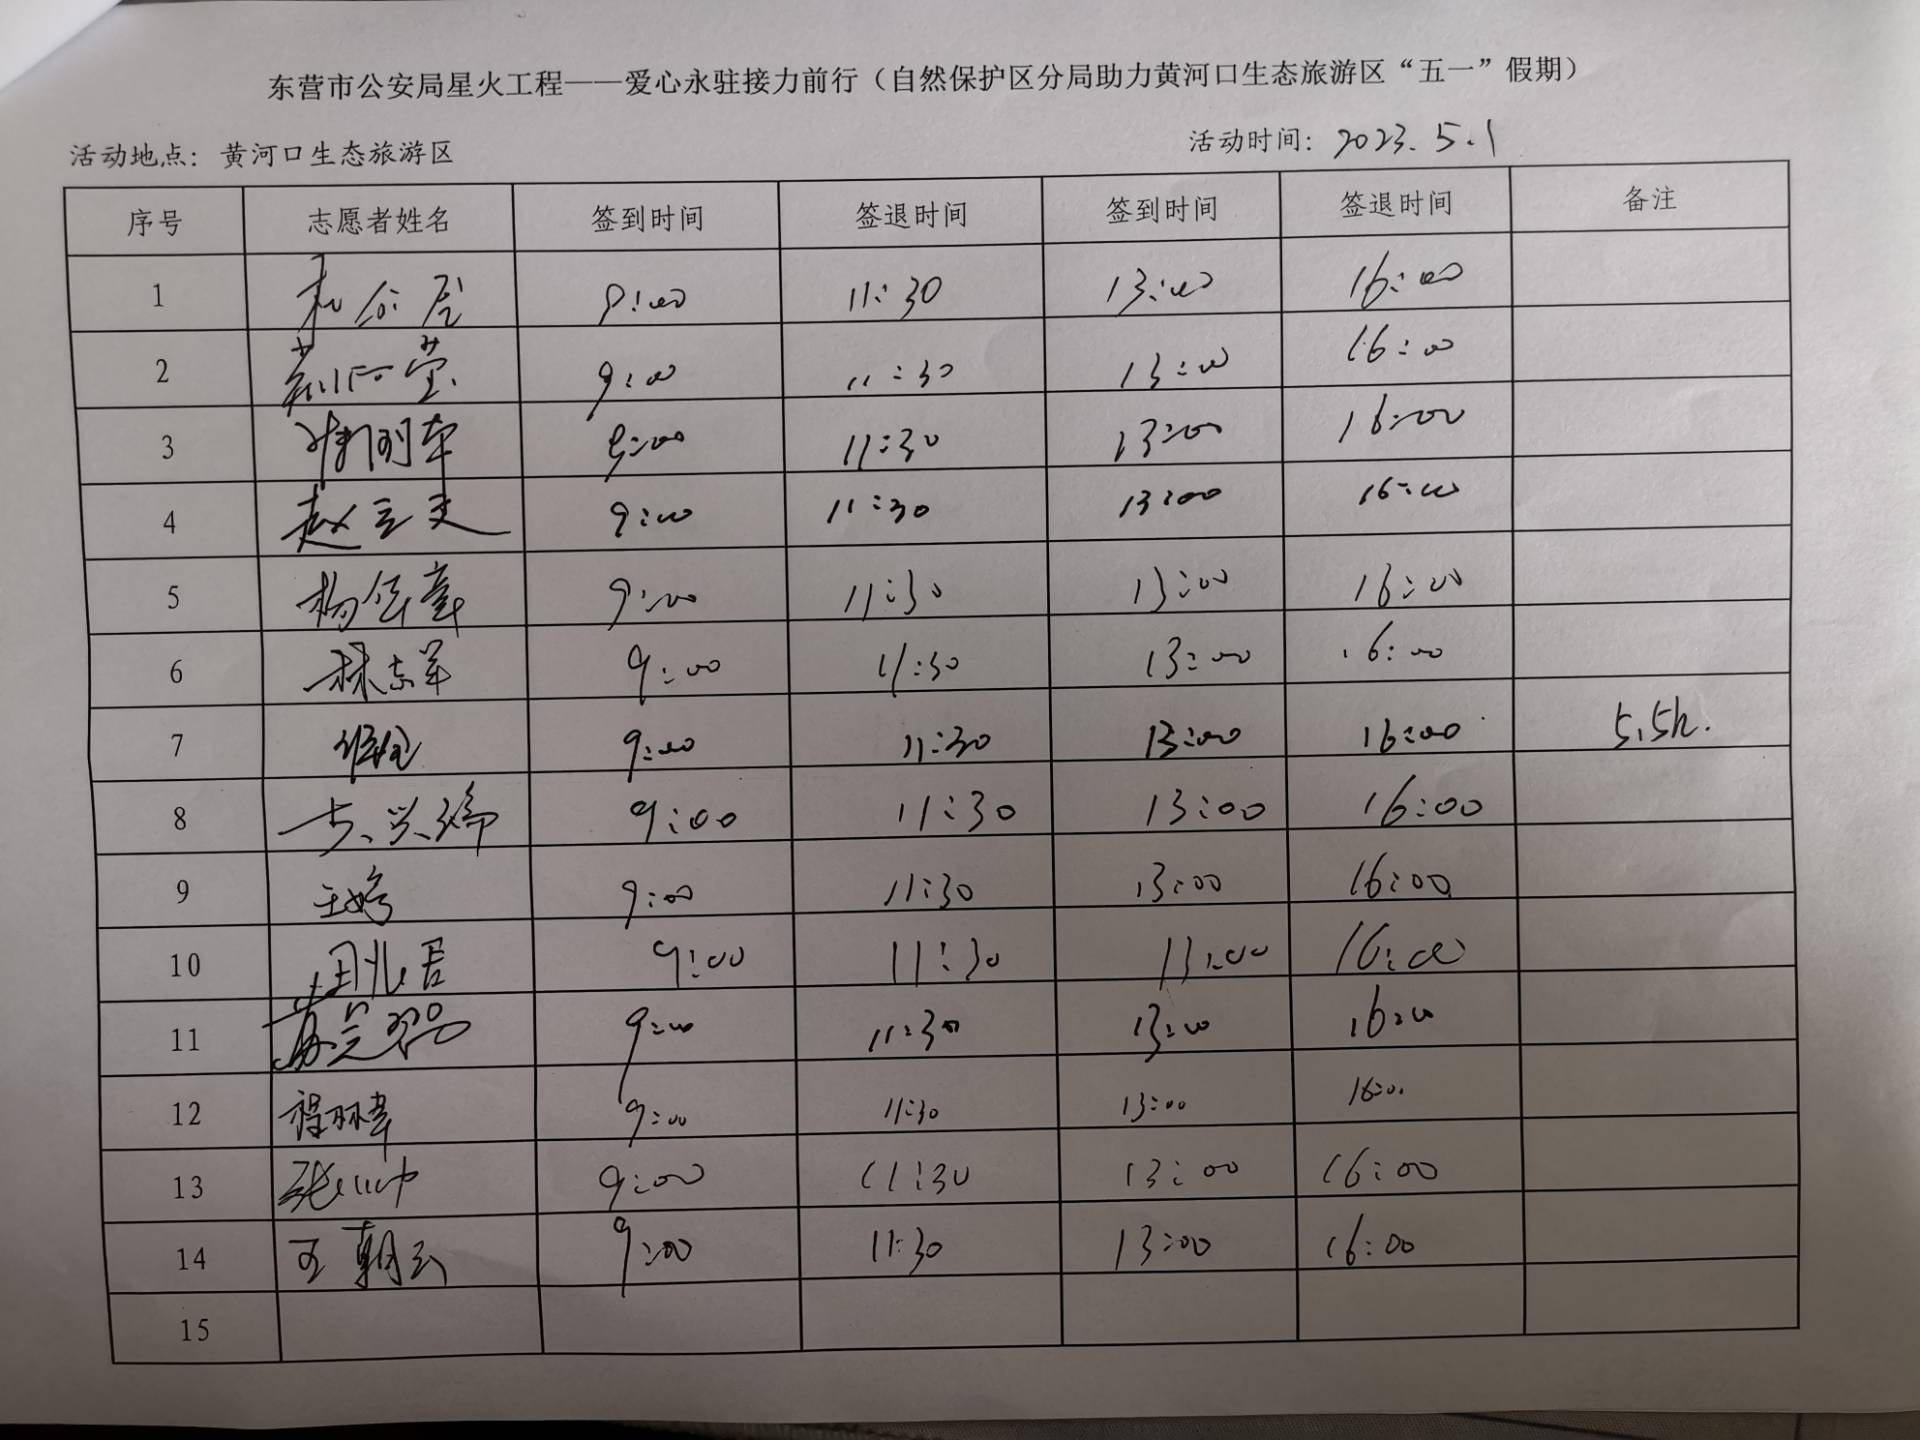 东营市公安局星火工程——爱心永驻接力前行（自然保护区分局助力黄河口生态旅游区“五一”假期）
活动地点：黄河口生态旅游区 活动时间：2023.5.1
序号 志愿者姓名 签到时间 签退时间 签到时间 签退时间 备注
1 9:00 11:30 13:00 16:00
2 9:00 11:30 13:00 16:00
3 9:00 11:30 13:00 16:00
4 赵立文 9:00 11:30 13:00 16:00
5 9:00 11:30 13:00 16:00
6 林志军 9:00 11:30 13:00 16:00
7 9:00 11:30 13:00 16:00 5.5h.
8 9:00 11:30 13:00 16:00
9 王婷 9:00 11:30 13:00 16:00
10 9:00 11:30 13:00 16:00
11 9:00 11:30 13:00 16:00
12 9:00 11:30 13:00 16:00
13 9:00 11:30 13:00 16:00
14 王朝云 9:00 11:30 13:00 16:00
15